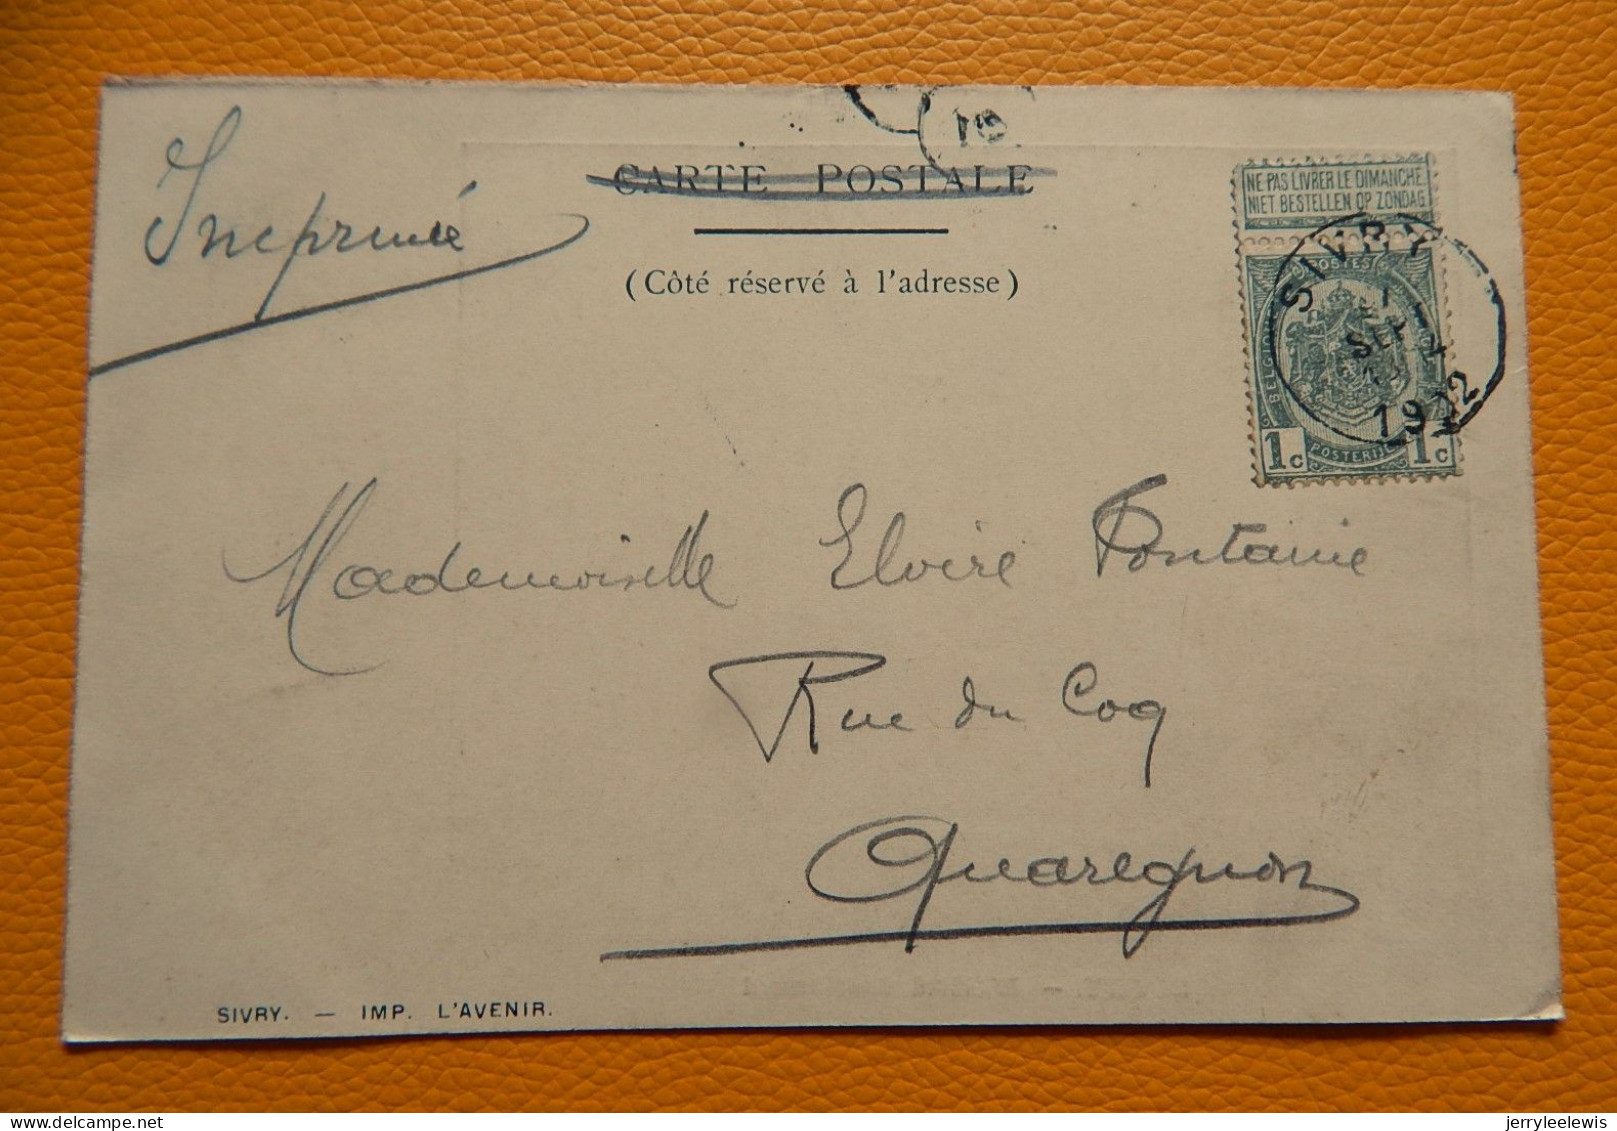 Imprimé
CARTE POSTALE
(Côté réservé à l'adresse)
NE PAS LIVRER LE DIMANCHE
NIET BESTELLEN OP ZONDAG
POSTES
BELGIQUE
POSTERIJEN
1c 1c
SIVRY
1
SEPT
1902
Mademoiselle Elvire Fontaine
Rue du Coq
Quaregnon
SIVRY. — IMP. L'AVENIR.
delcampe.net
jerryleelewis